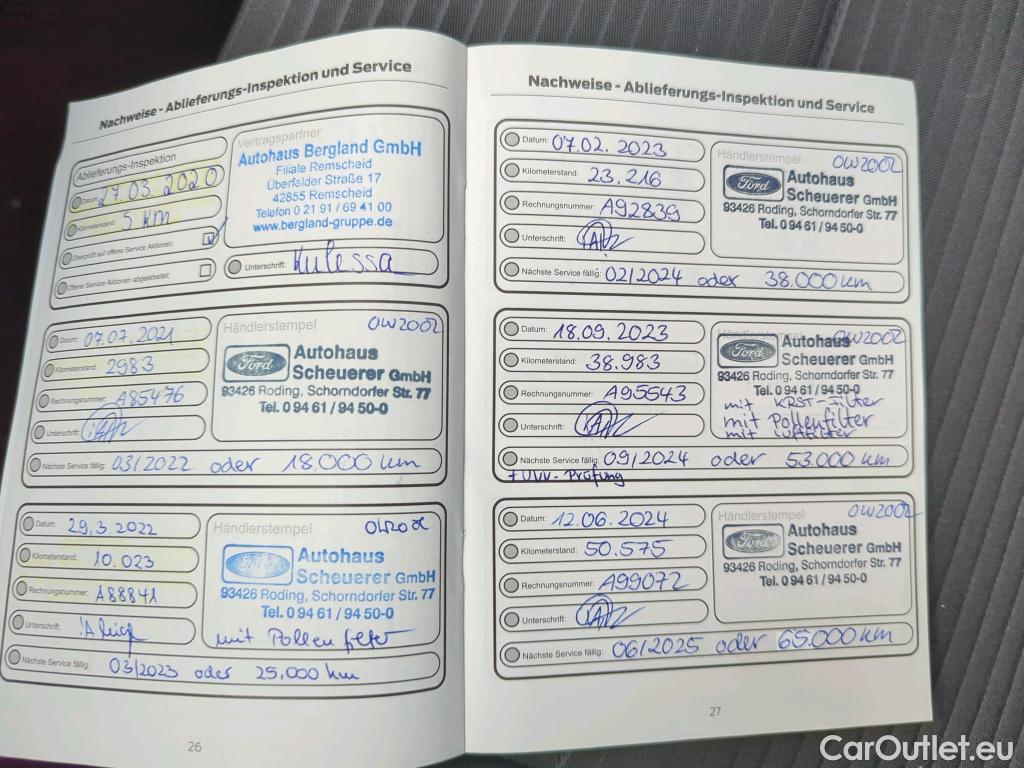 Nachweise - Ablieferungs-Inspektion und Service
Ablieferungs-Inspektion
Datum: 27.03.2020
Kilometerstand: 5 km
Überprüft auf offene Service Aktionen:
Offene Service Aktionen abgearbeitet:
Vertragspartner
Autohaus Bergland GmbH
Filiale Remscheid
Überfelder Straße 17
42855 Remscheid
Telefon 0 21 91 / 69 41 00
www.bergland-gruppe.de
Unterschrift: Kulessa
Datum: 07.07.2021
Kilometerstand: 2983
Rechnungsnummer: A85476
Unterschrift:
Händlerstempel OW2002
Ford
Autohaus
Scheuerer GmbH
93426 Roding, Schorndorfer Str. 77
Tel. 0 94 61 / 94 50-0
Nächste Service fällig: 03/2022 oder 18.000 km
Datum: 29.3.2022
Kilometerstand: 10.023
Rechnungsnummer: A88841
Unterschrift:
Händlerstempel
Ford
Autohaus
Scheuerer GmbH
93426 Roding, Schorndorfer Str. 77
Tel. 0 94 61 / 94 50-0
mit Pollenfilter
Nächste Service fällig: 03/2023 oder 25,000 km
26
Nachweise - Ablieferungs-Inspektion und Service
Datum: 07.02.2023
Kilometerstand: 23.216
Rechnungsnummer: A92839
Unterschrift:
Händlerstempel OW2002
Ford
Autohaus
Scheuerer GmbH
93426 Roding, Schorndorfer Str. 77
Tel. 0 94 61 / 94 50-0
Nächste Service fällig: 02/2024 oder 38.000 km
Datum: 18.09.2023
Kilometerstand: 38.983
Rechnungsnummer: A95543
Unterschrift:
Händlerstempel OW2002
Ford
Autohaus
Scheuerer GmbH
93426 Roding, Schorndorfer Str. 77
Tel. 0 94 61 / 94 50-0
mit KRST-Filter
mit Pollenfilter
mit Luftfilter
Nächste Service fällig: 09/2024 oder 53.000 km
+ UVV-Prüfung
Datum: 12.06.2024
Kilometerstand: 50.575
Rechnungsnummer: A99072
Unterschrift:
Händlerstempel OW2002
Ford
Autohaus
Scheuerer GmbH
93426 Roding, Schorndorfer Str. 77
Tel. 0 94 61 / 94 50-0
Nächste Service fällig: 06/2025 oder 65.000 km
27
CarOutlet.eu